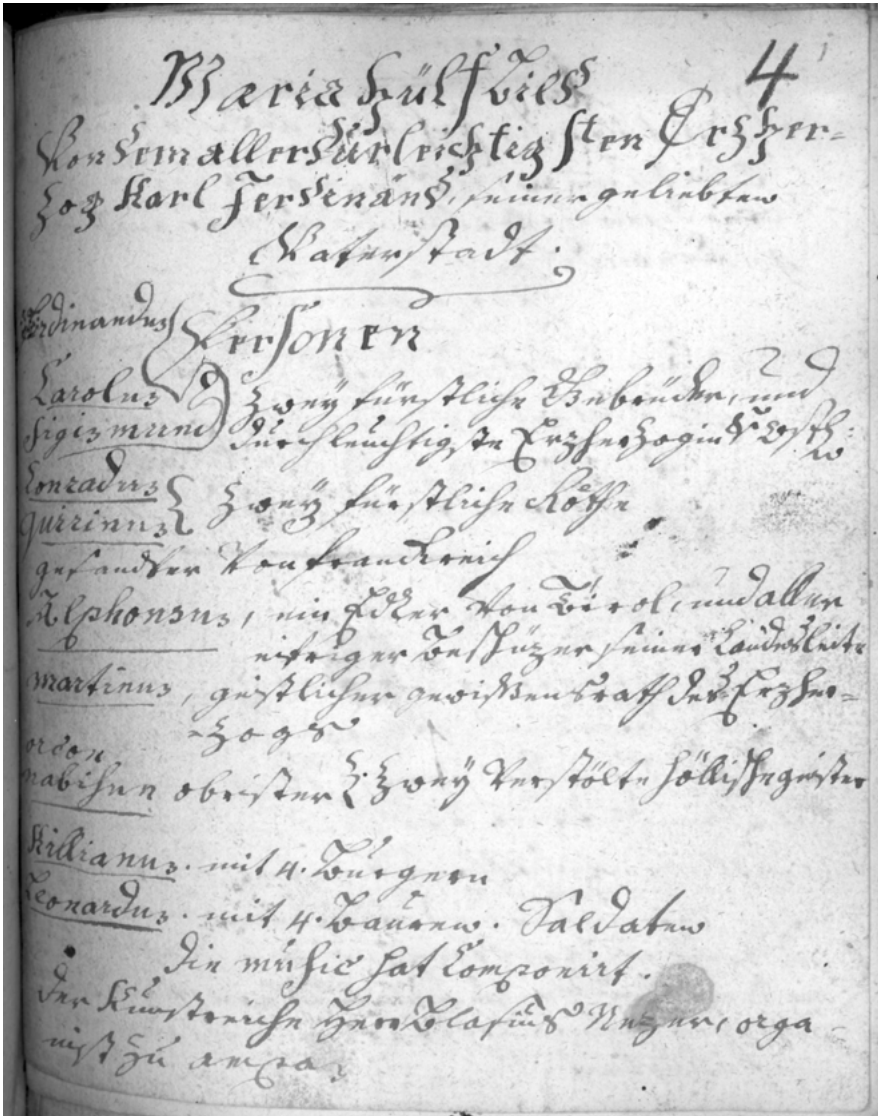 4
Maria Hülf Bild
Von dem allerdurleichtigsten Erzher=
zog Karl Ferdinand, seiner geliebten
Vaterstadt.
Personen
Ferdinandus
Carolus
Sigismund
zwey fürstliche Gebrüder, und
durchleuchtigste Erzherzogin
Conradus
Quirinus
zwey fürstliche Räthe
gesandter Von frankreich
Alphonsus, ein Edler Von Tirol, und aller
eifriger Beschüzer seiner Landesleite
Martinus, geistlicher gewissensrath des Erzher=
=zogs
obrister zwey Verstölte höllische geister
Killianus. mit 4. Burgern
Leonardus. mit 4. Bauren. Saldaten
Die music hat Componirt.
Der Kunstreiche Herr Blasius Nezer, orga=
nist zu